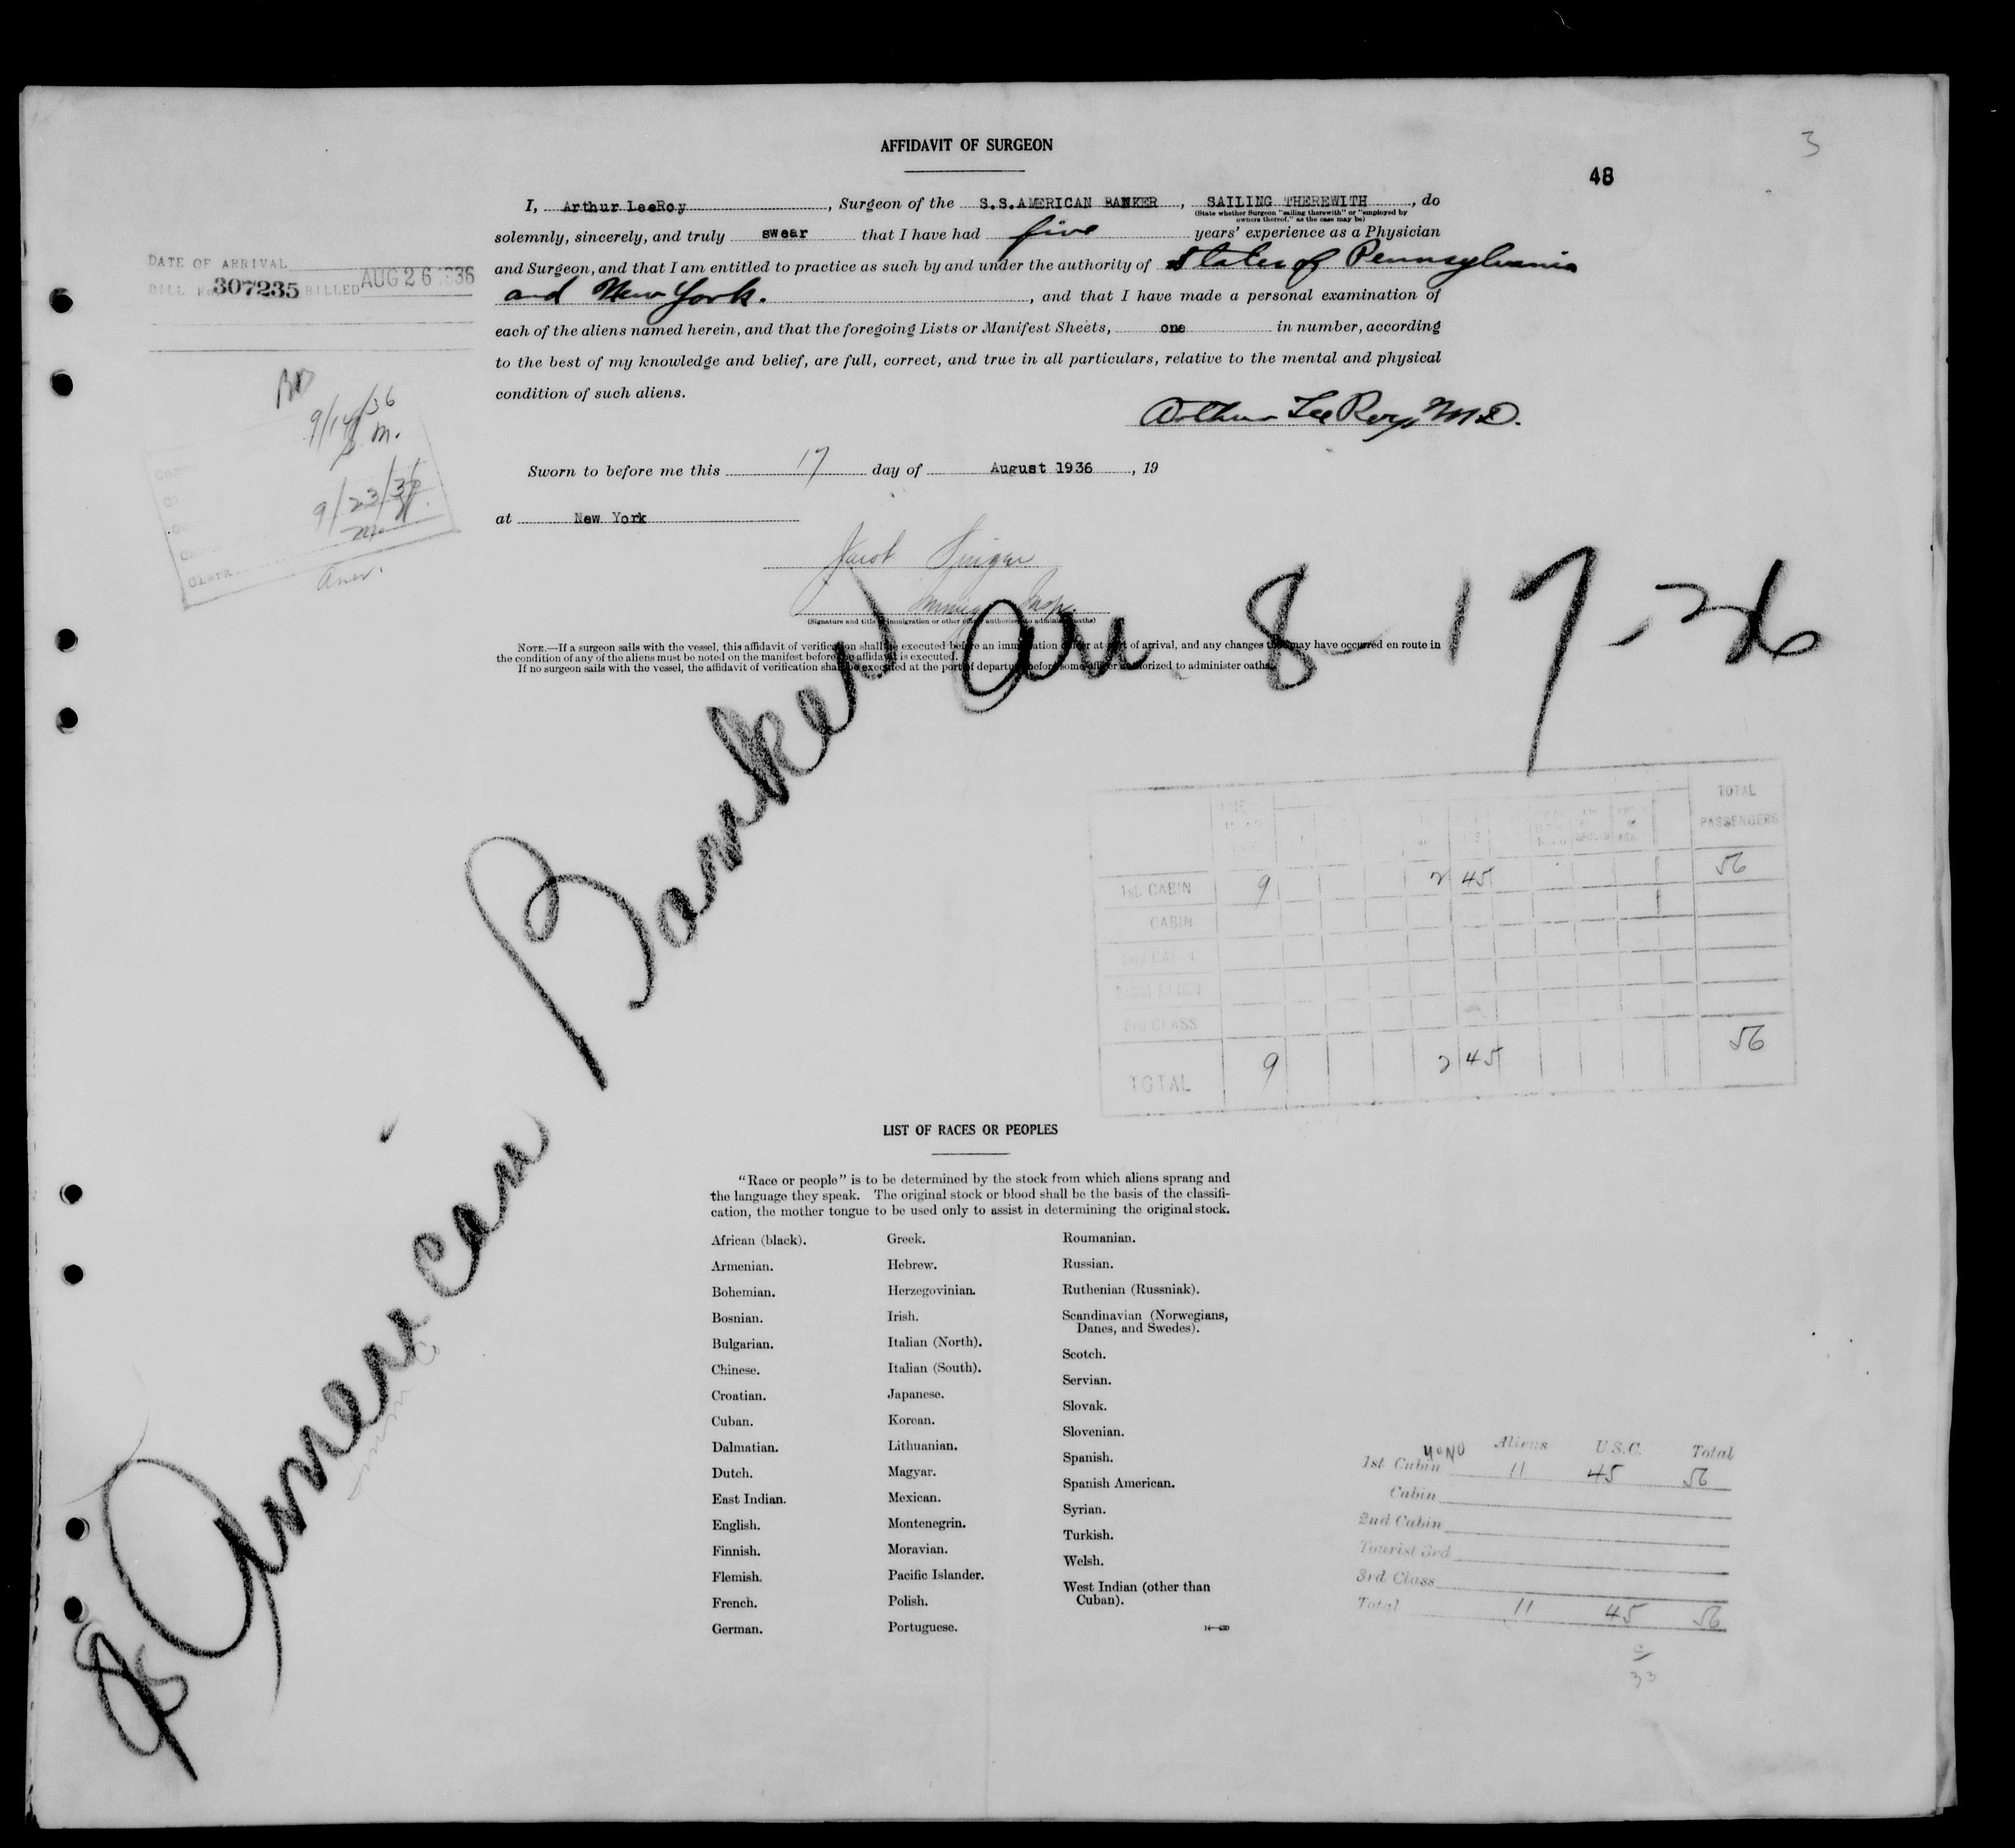 AFFIDAVIT OF SURGEON
3
48
I, Arthur LeeRoy, Surgeon of the S.S.AMERICAN BANKER, SAILING THEREWITH, do
(State whether Surgeon "sailing therewith" or "employed by
owners thereof," as the case may be)
solemnly, sincerely, and truly swear that I have had five years' experience as a Physician
and Surgeon, and that I am entitled to practice as such by and under the authority of States of Pennsylvania
and New York., and that I have made a personal examination of
each of the aliens named herein, and that the foregoing Lists or Manifest Sheets, one in number, according
to the best of my knowledge and belief, are full, correct, and true in all particulars, relative to the mental and physical
condition of such aliens.
Arthur LeeRoy, M.D.
Sworn to before me this 17 day of August 1936, 19
at New York
Jacob
(Signature and title of immigration or other officer authorized to administer oaths)
NOTE.—If a surgeon sails with the vessel, this affidavit of verification shall be executed before an immigration officer at port of arrival, and any changes that may have occurred en route in
the condition of any of the aliens must be noted on the manifest before the affidavit is executed.
If no surgeon sails with the vessel, the affidavit of verification shall be executed at the port of departure before some officer authorized to administer oaths.
DATE OF ARRIVAL
BILL No. 307235 BILLED AUG 26 1936
9/14/36
9/23/36
Clerk
SS American Banker arr 8-17-36
TOTAL
PASSENGERS
1st. CABIN 9 2 45 56
CABIN
2nd CABIN
3rd CLASS
TOTAL 9 2 45 56
LIST OF RACES OR PEOPLES
"Race or people" is to be determined by the stock from which aliens sprang and
the language they speak. The original stock or blood shall be the basis of the classifi-
cation, the mother tongue to be used only to assist in determining the original stock.
African (black).
Armenian.
Bohemian.
Bosnian.
Bulgarian.
Chinese.
Croatian.
Cuban.
Dalmatian.
Dutch.
East Indian.
English.
Finnish.
Flemish.
French.
German.
Greek.
Hebrew.
Herzegovinian.
Irish.
Italian (North).
Italian (South).
Japanese.
Korean.
Lithuanian.
Magyar.
Mexican.
Montenegrin.
Moravian.
Pacific Islander.
Polish.
Portuguese.
Roumanian.
Russian.
Ruthenian (Russniak).
Scandinavian (Norwegians,
Danes, and Swedes).
Scotch.
Servian.
Slovak.
Slovenian.
Spanish.
Spanish American.
Syrian.
Turkish.
Welsh.
West Indian (other than
Cuban).
Aliens U.S.C. Total
1st Cabin 11 45 56
Cabin
2nd Cabin
Tourist 3rd
3rd Class
Total 11 45 56
33